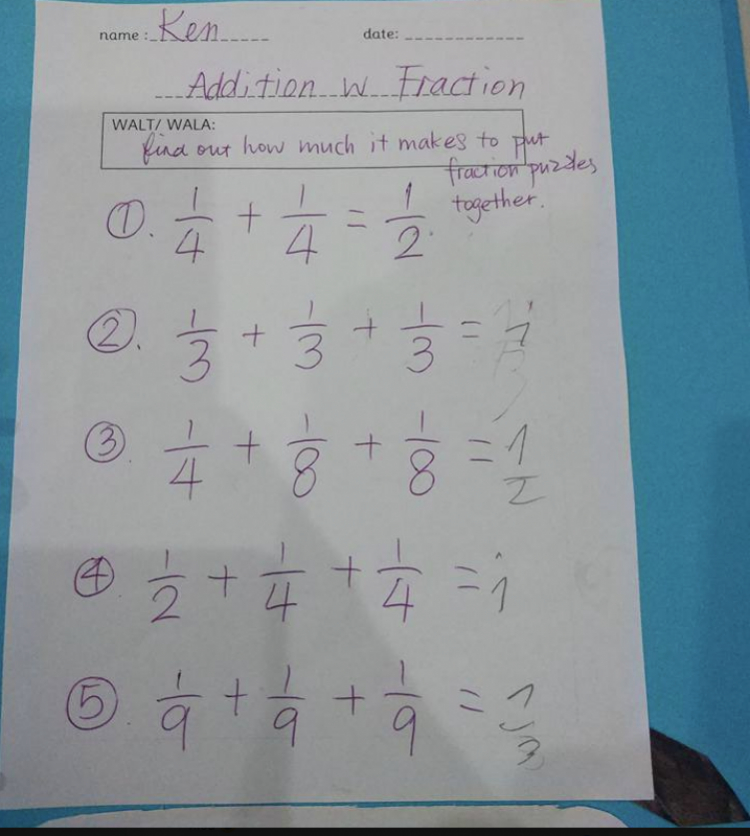 name : Ken date:
Addition w Fraction
WALT/ WALA:
find out how much it makes to put
fraction puzzles
together.
①. 1/4 + 1/4 = 1/2
②. 1/3 + 1/3 + 1/3 = 1
③. 1/4 + 1/8 + 1/8 = 1/2
④. 1/2 + 1/4 + 1/4 = 1
⑤. 1/9 + 1/9 + 1/9 = 1/3